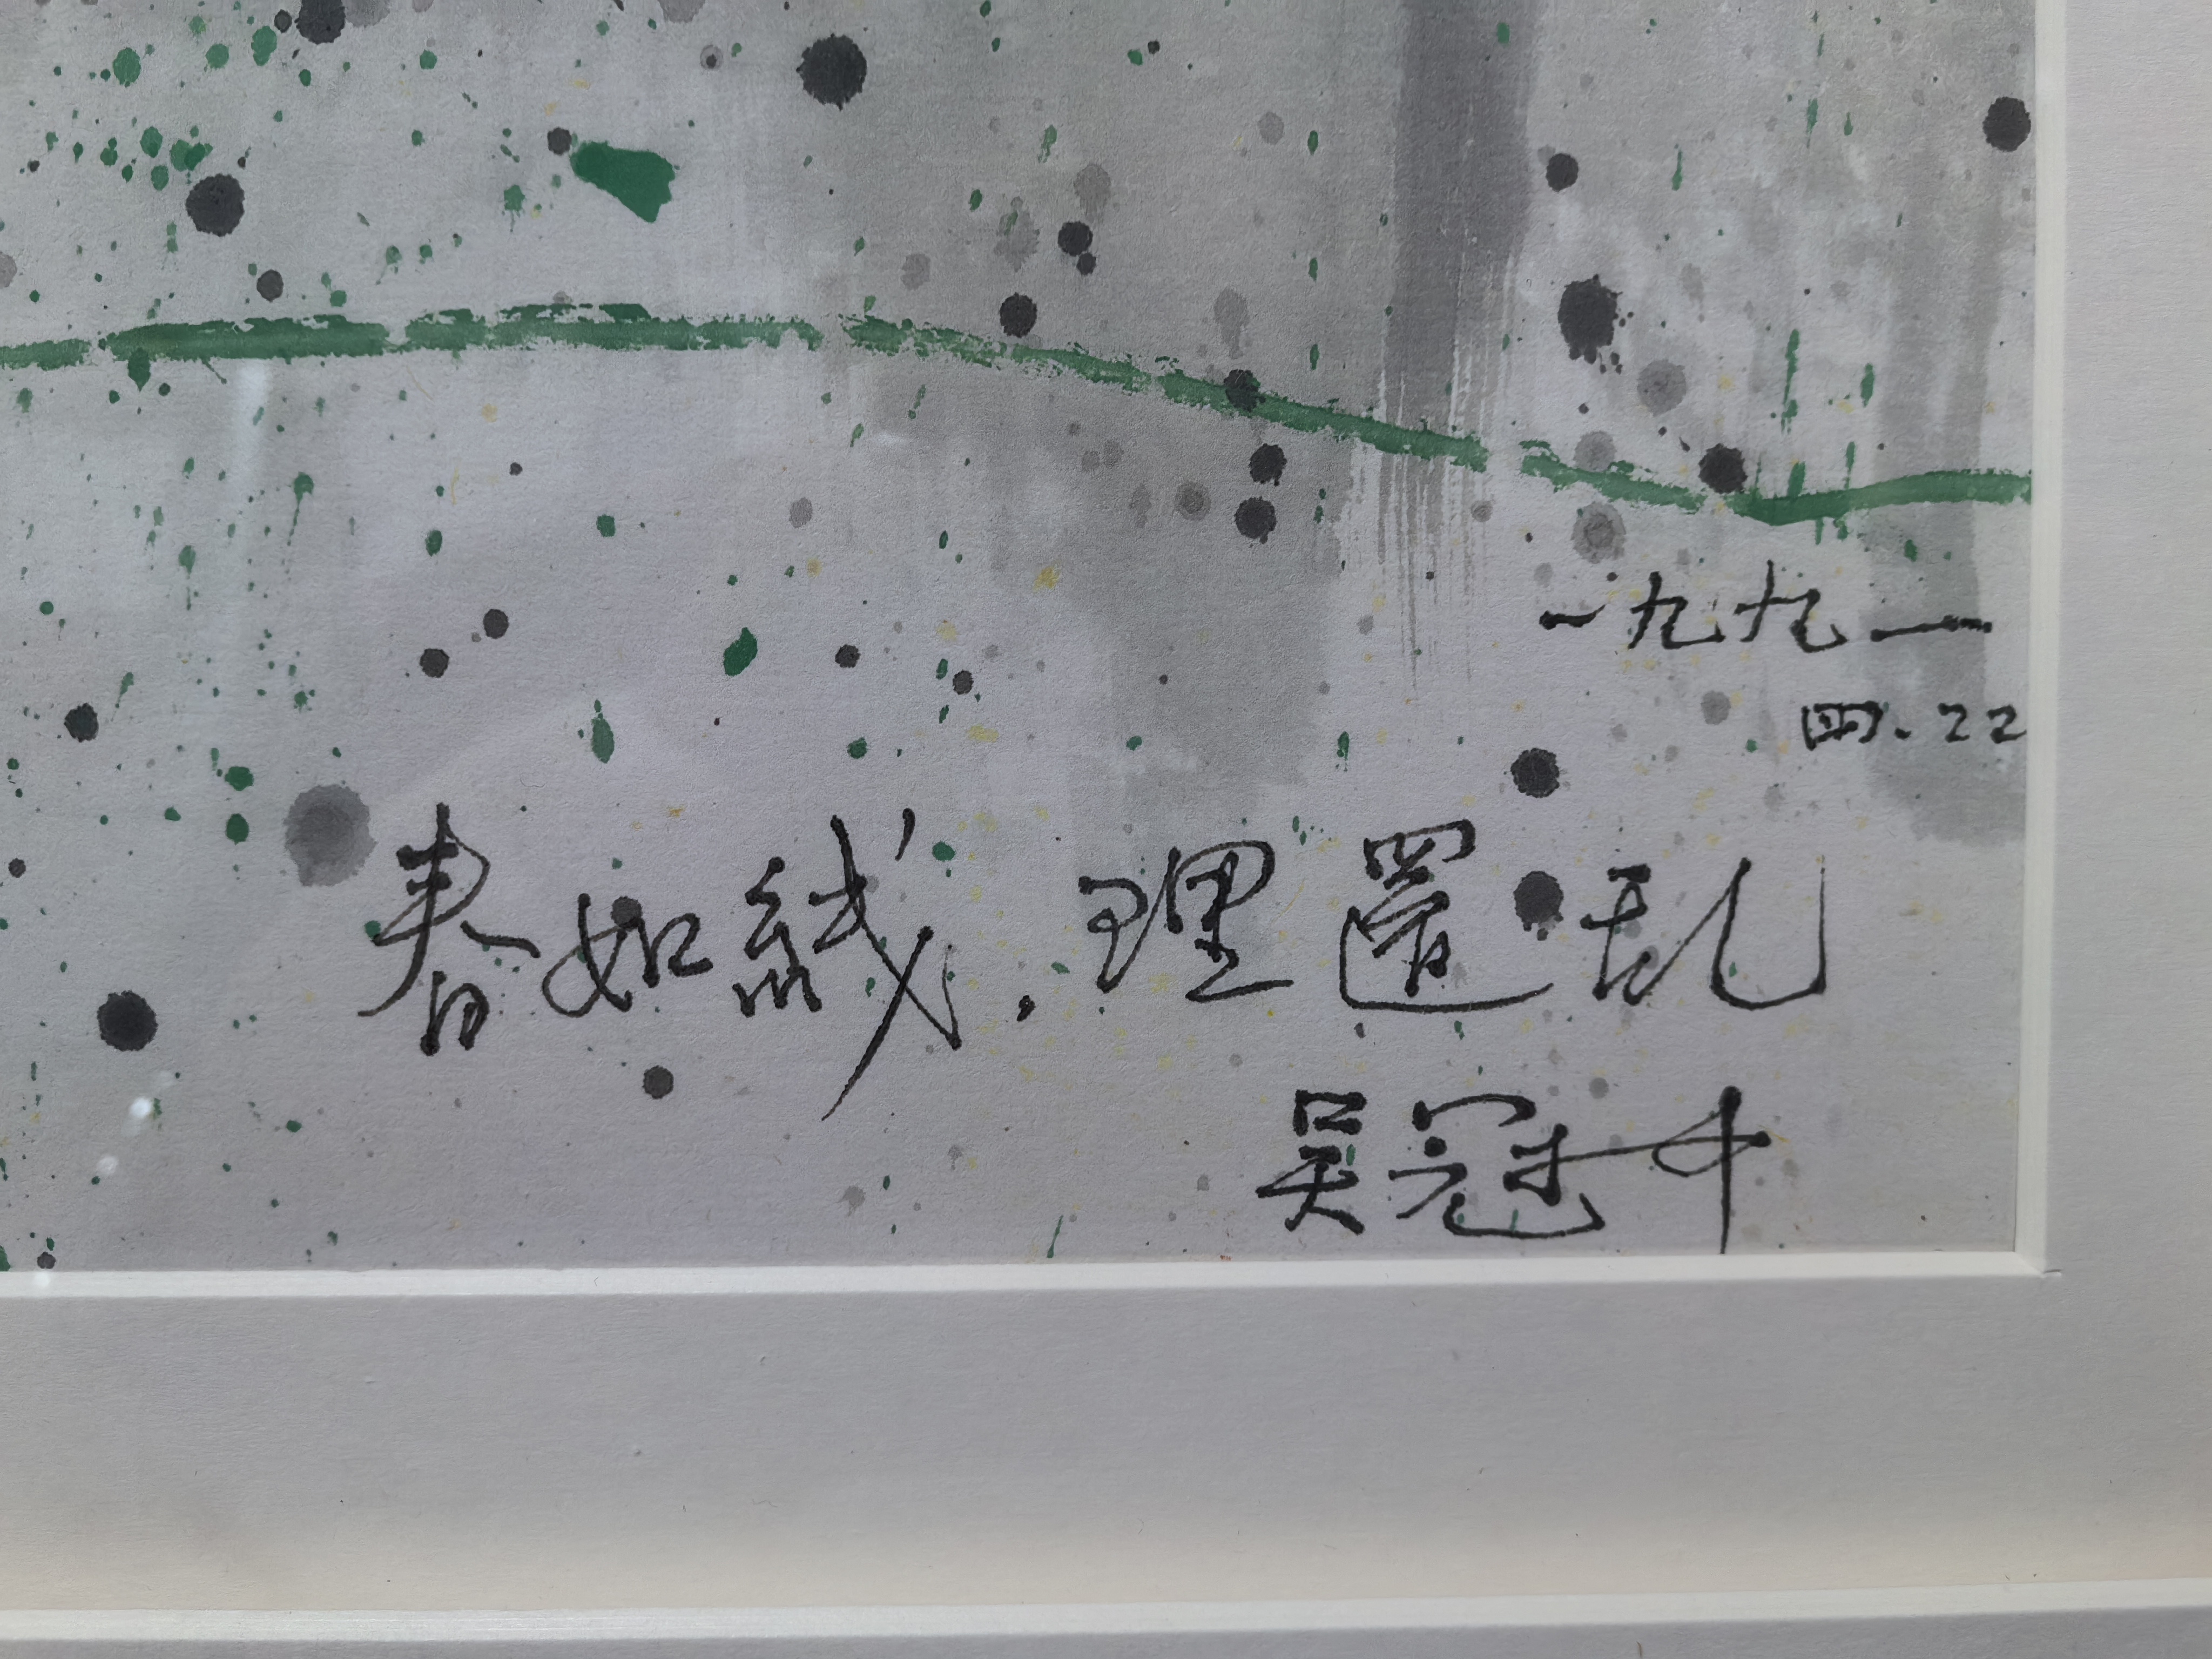 一九九一
四.22
春如綫.理還乱
吴冠中